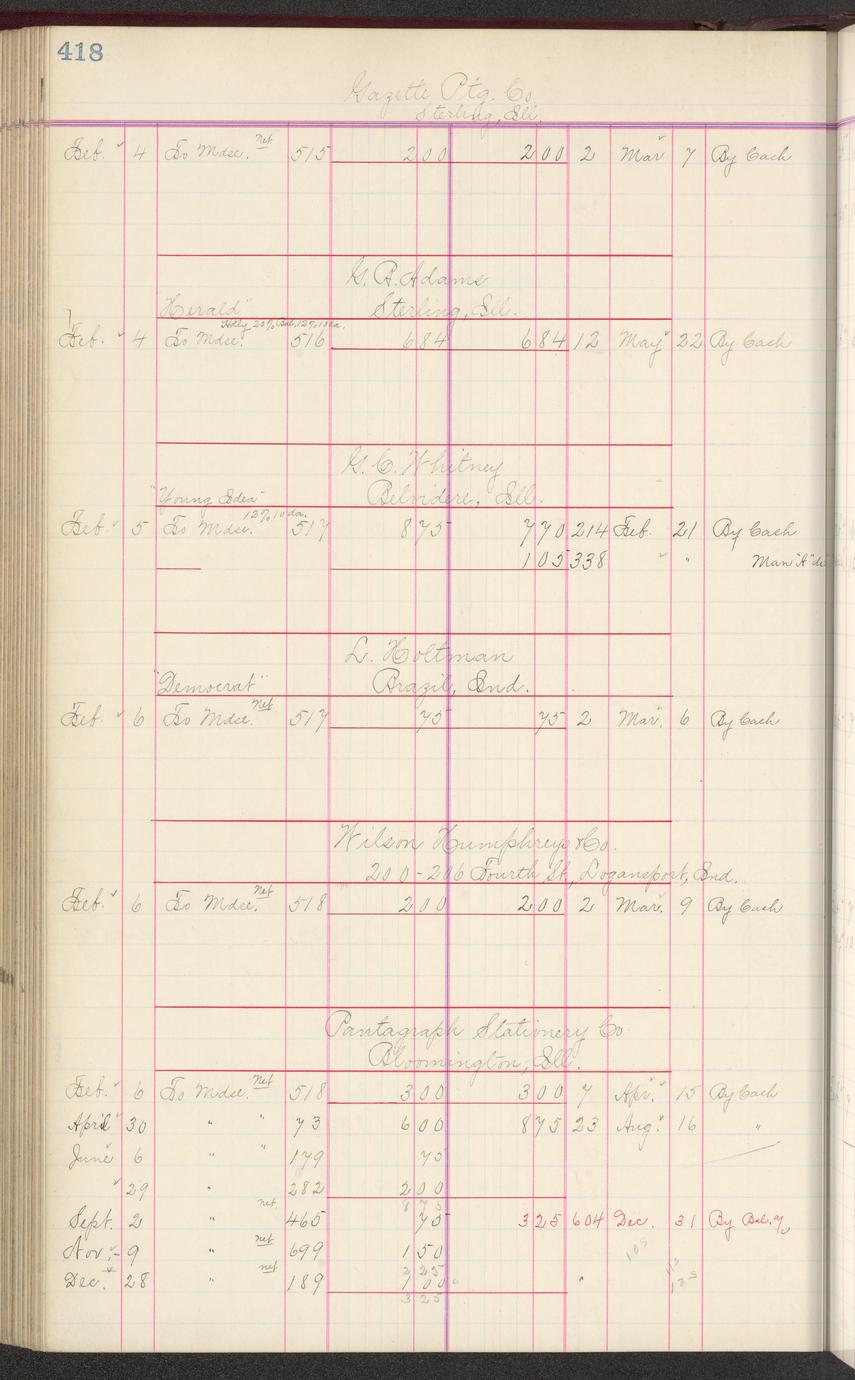 418
Gazette Ptg. Co.
Sterling, Ill.
Feb. 4 To Mdse. Net 515 2 00 2 00 2 Mar 7 By Cash
G. P. Adams
"Herald" Sterling, Ill.
Feb. 4 To Mdse. 516 6 84 6 84 12 May 22 By Cash
G. C. Whitney
"Young Idea" Belvidere, Ill.
12% 10 da.
Feb. 5 To Mdse. 517 8 75 7 70 214 Feb. 21 By Cash
1 05 338 " " Man "A"
L. Holtman
"Democrat" Brazil, Ind.
Feb. 6 To Mdse. Net 517 75 75 2 Mar. 6 By Cash
Wilson Humphreys & Co.
200-206 Fourth St., Logansport, Ind.
Feb. 6 To Mdse. Net 518 2 00 2 00 2 Mar. 9 By Cash
Pantagraph Stationery Co.
Bloomington, Ill.
Feb. 6 To Mdse. Net 518 3 00 3 00 7 Apr. 15 By Cash
April 30 " " 73 6 00 8 75 23 Aug. 16 "
June 6 " " 179 75
29 " 282 2 00
8 75
Sept. 2 " net 465 75 3 25 604 Dec. 31 By Bal.
Nov. 9 " net 699 1 50
2 25
Dec. 28 " net 189 1 00 "
3 25